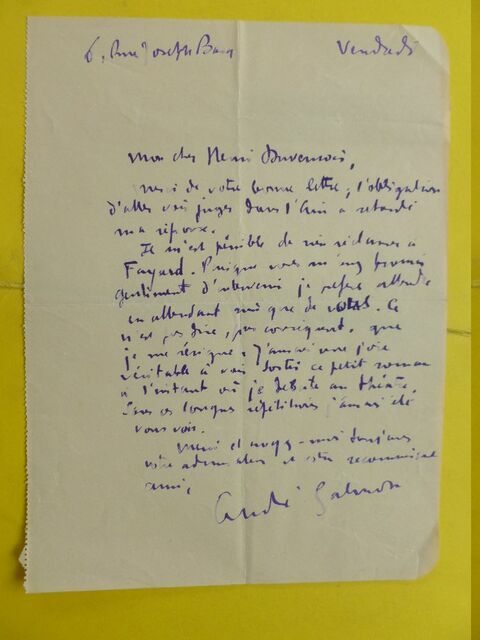 6, Rue Joseph Bara Vendredi
Mon cher Henri Duvernois,
merci de votre bonne lettre; l'obligation
d'aller voir juger dans l'Ain a retardé
ma réponse.
Il m'est pénible de rien réclamer à
Fayard. Puisque vous m'avez promis
gentiment d'intervenir je préfère attendre
en attendant que de vous. Ce
n'est pas dire, par conséquent, que
je me résigne; j'aurai une joie
véritable à voir sortir ce petit roman
à l'instant où je débute au théâtre.
Sans ces longues répétitions j'aurais été
vous voir.
Merci et croyez-moi toujours
votre admirateur et votre reconnaissant
ami,
André Salmon